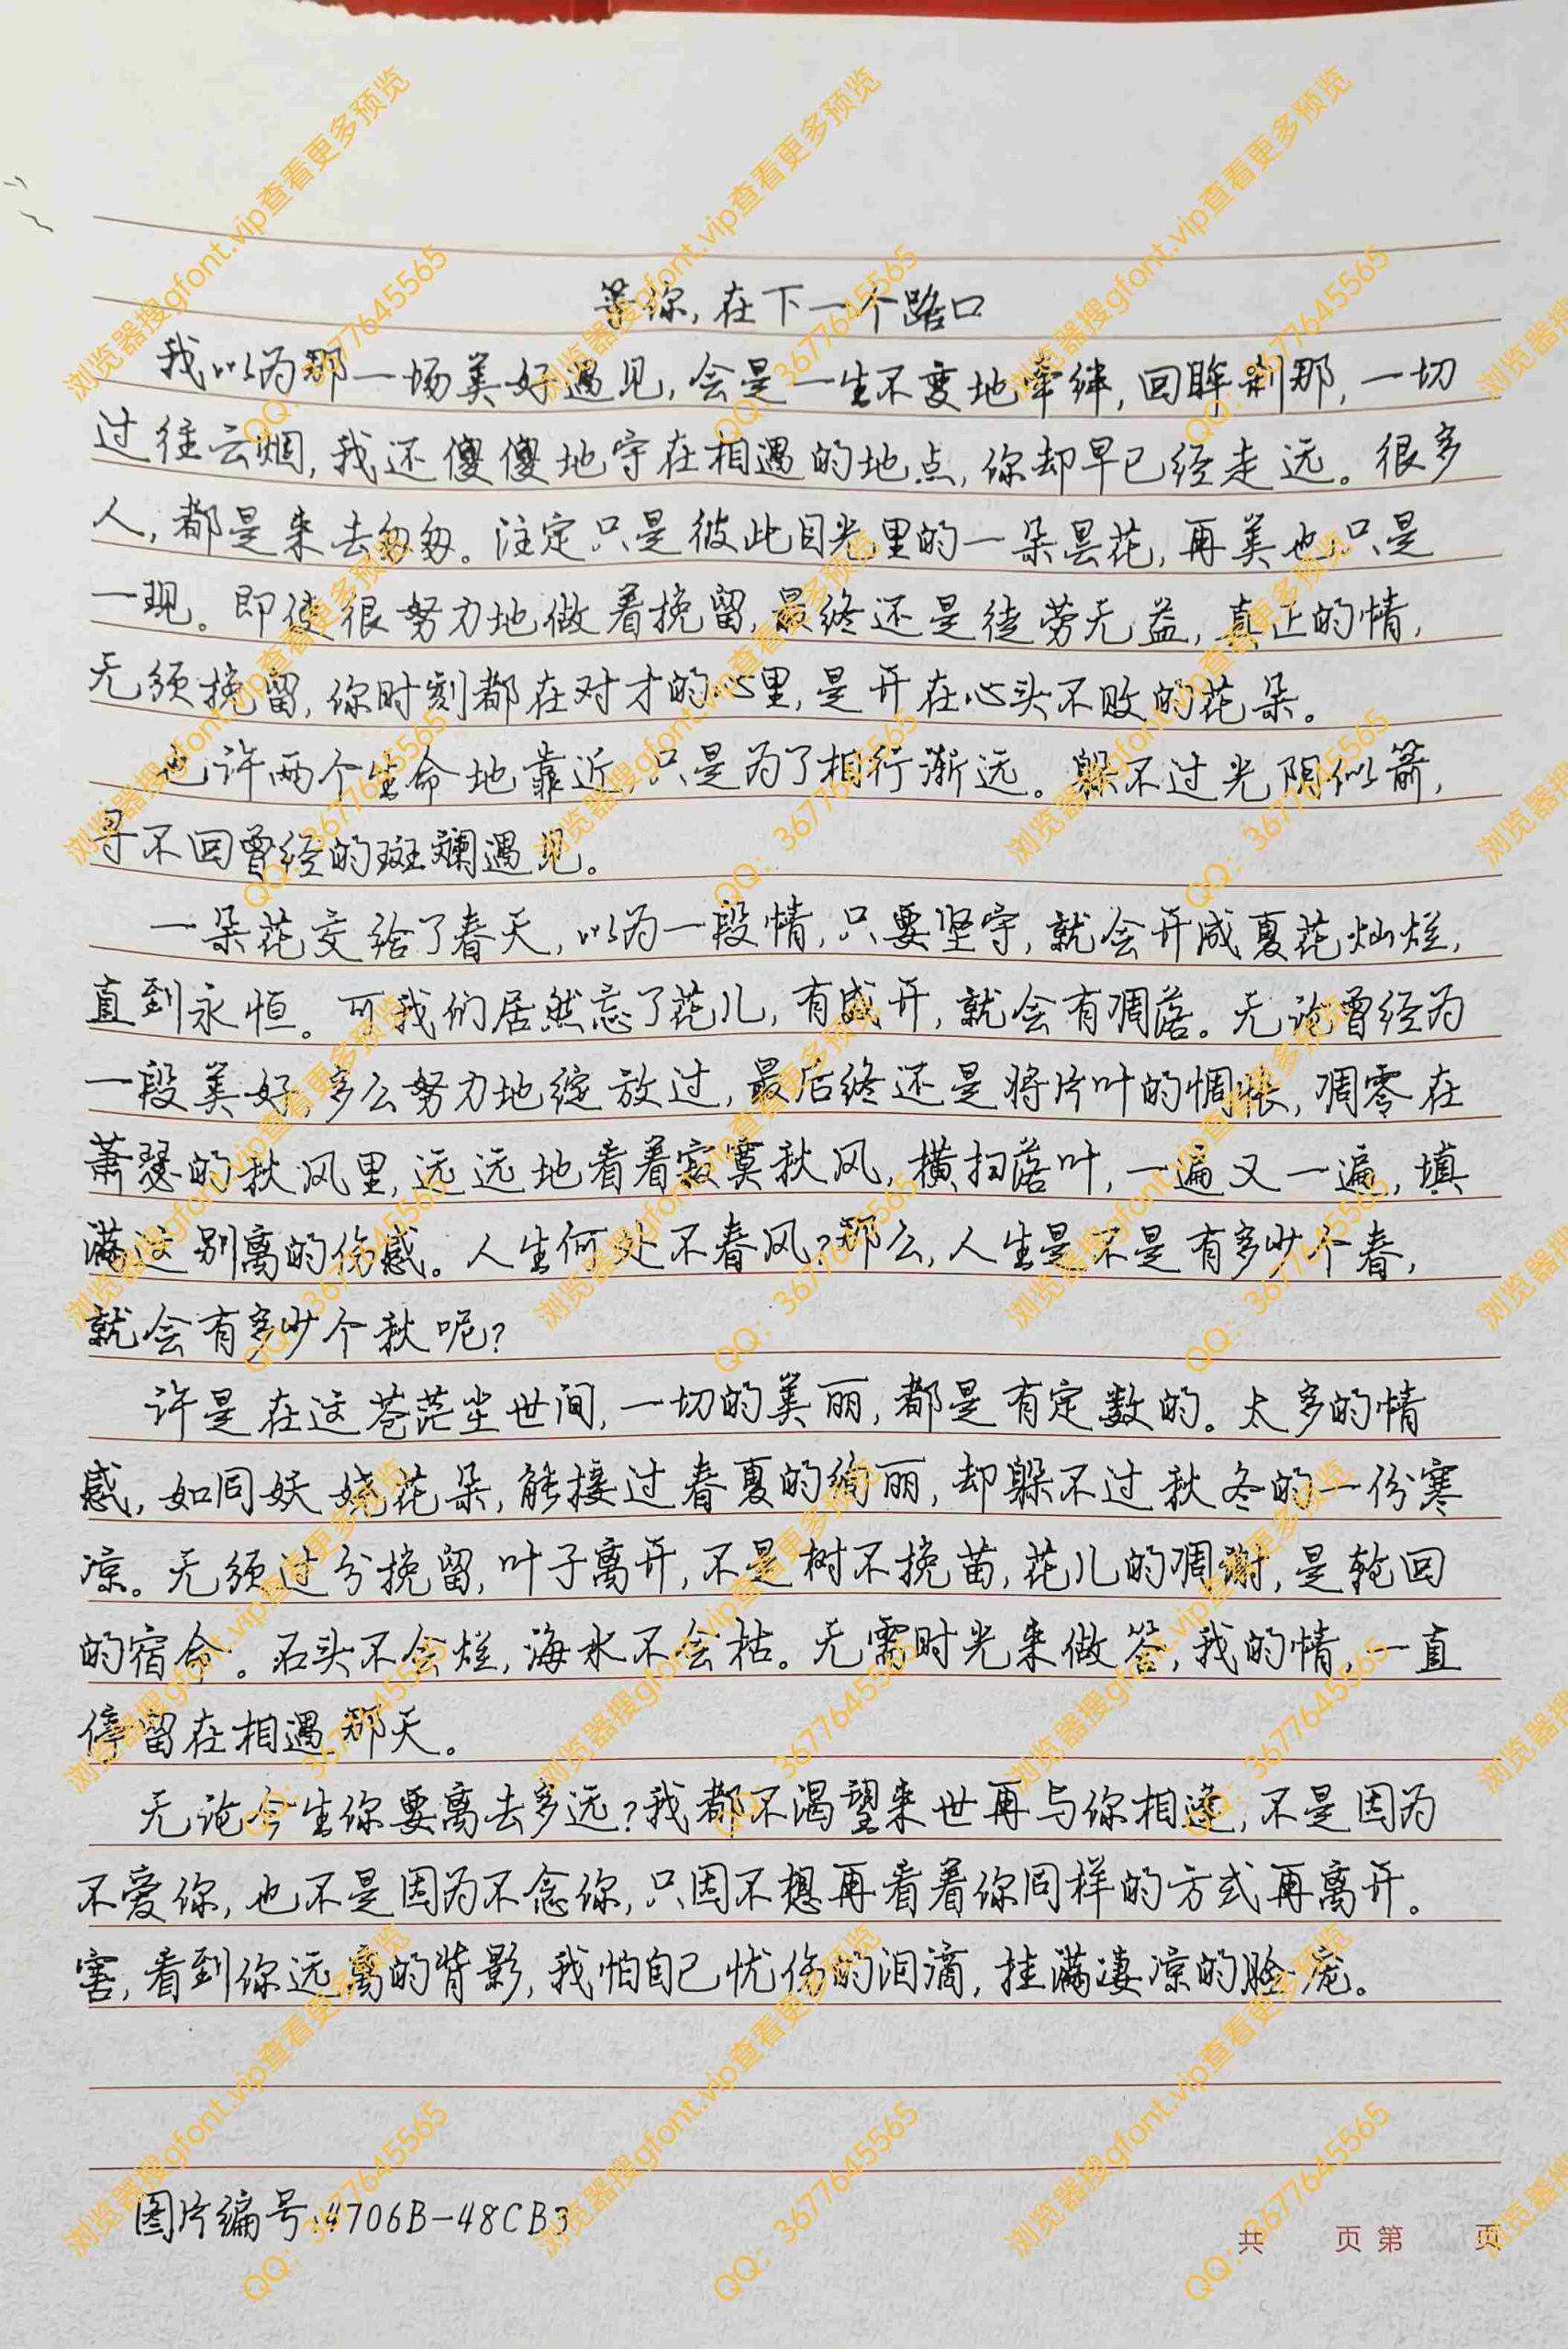 等你,在下一个路口
我以为那一场美好遇见,会是一生不变地牵绊,回眸刹那,一切
过往云烟,我还傻傻地守在相遇的地点,你却早已经走远。很多
人,都是来去匆匆。注定只是彼此目光里的一朵昙花,再美也只是
一现。即使很努力地做着挽留,最终还是徒劳无益,真正的情,
无须挽留,你时刻都在对才的心里,是开在心头不败的花朵。
也许两个生命地靠近,只是为了相行渐远。躲不过光阴似箭,
寻不回曾经的斑斓遇见。
一朵花交给了春天,以为一段情,只要坚守,就会开成夏花灿烂,
直到永恒。可我们居然忘了花儿,有盛开,就会有凋落。无论曾经为
一段美好,多么努力地绽放过,最后终还是将片叶的惆怅,凋零在
萧瑟的秋风里,远远地看着寂寞秋风,横扫落叶,一遍又一遍,填
满这别离的伤感。人生何处不春风?那么,人生是不是有多少个春,
就会有多少个秋呢?
许是在这苍茫尘世间,一切的美丽,都是有定数的。太多的情
感,如同妖娆花朵,能接过春夏的绚丽,却躲不过秋冬的一份寒
凉。无须过分挽留,叶子离开,不是树不挽苗,花儿的凋谢,是轮回
的宿命。石头不会烂,海水不会枯。无需时光来做答,我的情,一直
停留在相遇那天。
无论今生你要离去多远?我都不渴望来世再与你相逢,不是因为
不爱你,也不是因为不念你,只因不想再看着你同样的方式再离开。
害,看到你远离的背影,我怕自己忧伤的泪滴,挂满凄凉的脸庞。
图片编号:4706B-48CB3
共 页 第 页
浏览器搜gfont.vip查看更多预览
QQ:3677645565